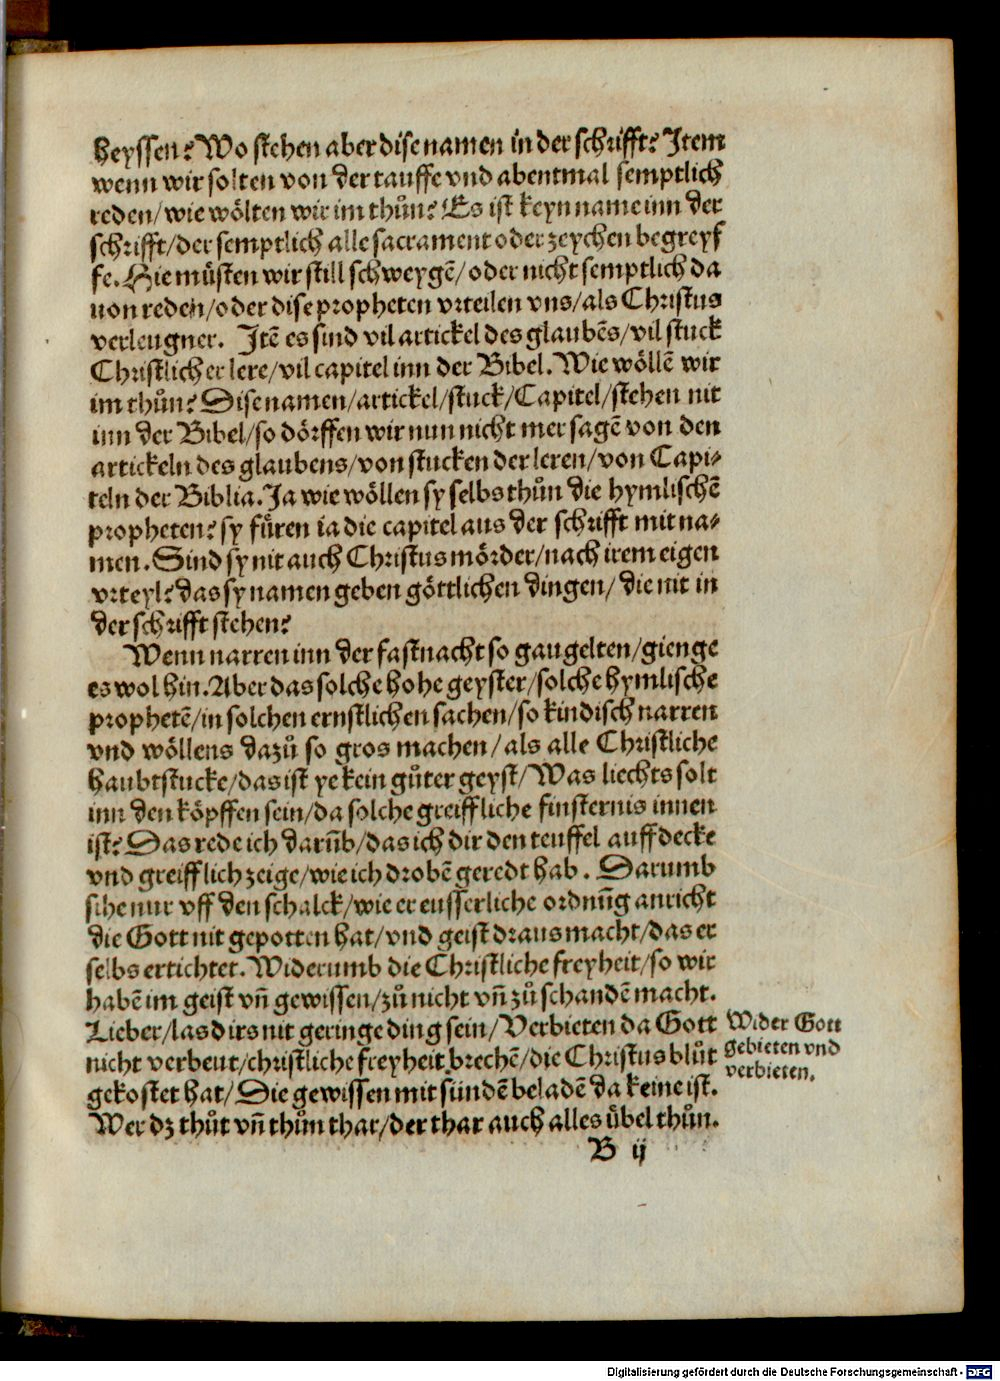 heyssen? Wo stehen aber dise namen in der schrifft? Item
wenn wir solten von der tauffe vnd abentmal semptlich
reden/wie wölten wir im thůn? Es ist keyn name inn der
schrifft/der semptlich alle sacrament oder zeychen begreyf
fe. Hie müsten wir still schweygē/oder nicht semptlich da
uon reden/oder dise propheten vrteilen vns/als Christus
verleugner. Itē es sind vil artickel des glaubēs/vil stuck
Christlicher lere/vil capitel inn der Bibel. Wie wöllē wir
im thůn? Dise namen/artickel/stuck/Capitel/stehen nit
inn der Bibel/so dörffen wir nun nicht mer sagē von den
artickeln des glaubens/von stucken der leren/von Capi⸗
teln der Biblia. Ja wie wöllen sy selbs thůn die hymlischē
propheten? sy füren ia die capitel aus der schrifft mit na⸗
men. Sind sy nit auch Christus mörder/nach irem eigen
vrteyl? das sy namen geben göttlichen dingen/ die nit in
der schrifft stehen?
Wenn narren inn der fastnacht so gaugelten/gienge
es wol hin. Aber das solche hohe geyster/solche hymlische
prophetē/in solchen ernstlichen sachen/so kindisch narren
vnd wöllens dazů so gros machen/als alle Christliche
haubtstucke/das ist ye kein gůter geyst/Was liechts solt
inn den köpffen sein/da solche greiffliche finsternis innen
ist? Das rede ich darūb/das ich dir den teuffel auffdecke
vnd greifflich zeige/wie ich drobē geredt hab. Darumb
sihe nur vff den schalck/wie er eusserliche ordnūg anricht
die Gott nit gepotten hat/vnd geist draus macht/das er
selbs ertichtet. Widerumb die Christliche freyheit/so wir
habē im geist vñ gewissen/zů nicht vñ zů schandē macht.
Lieber/las dirs nit geringe ding sein/Verbieten da Gott
nicht verbeut/christliche freyheit brechē/die Christus blůt
gekostet hat/Die gewissen mit sündē beladē da keine ist.
Wer dz thůt vñ thům thar/der thar auch alles übel thůn.
Wider Gott
gebieten vnd
verbieten.
B ij
Digitalisierung gefördert durch die Deutsche Forschungsgemeinschaft - DFG